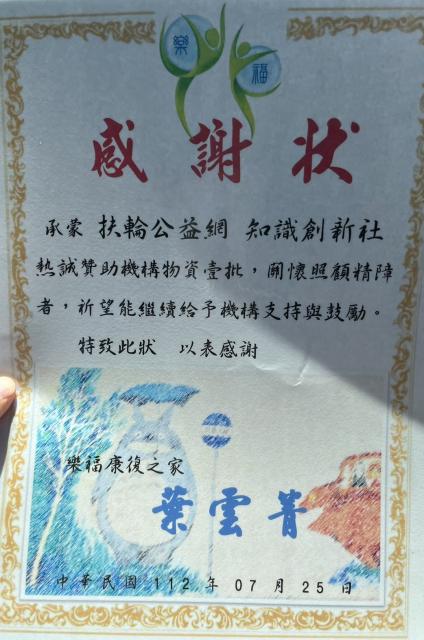 樂 福
感謝狀
承蒙 扶輪公益網 知識創新社
熱誠贊助機構物資壹批，關懷照顧精障
者，祈望能繼續給予機構支持與鼓勵。
特致此狀 以表感謝
樂福康復之家
葉雲菁
中華民國 112 年 07 月 25 日